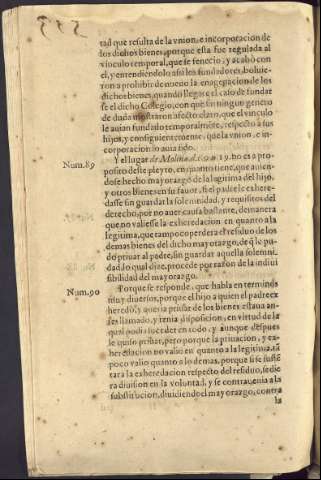 tad que resulta de la vnion, e incorporacion de
los dichos bienes, porque esta fue regulada al
vinculo temporal, que se fenecio, y acabò con
el, y entendiendolo assi los fundadores, boluie-
ron a prohibir de nueuo la enagenacion de los
dichos bienes, quando llegare el caso de fundar
se el dicho Colegio, con que sin ningun genero
de duda mostraron afecto claro, que el vinculo
le auian fundado temporalmente, respecto a sus
hijos, y consiguientemente, que la vnion, e in-
corporacion no aura sido.
Num.89 Y el lugar de Molina d. 19. no es a pro-
posito deste pleyto, en quanto tiene, que auien-
dose hecho mayorazgo de la legitima del hijo,
y otros bienes en su fauor, si el padre le exhere-
dasse sin guardar la solemnidad, y requisitos del
derecho, por no auer causa bastante, demanera
que no valiesse la exheredacion en quanto a la
legitima, que tampoco perdera el residuo de los
demas bienes del dicho mayorazgo, de q̃ le pu-
do priuar al padre, sin guardar aquella solemni-
dad, lo qual dize, procede por razon de la indiui
sibilidad del mayorazgo.
Num.90 Porque se responde, que habla en terminos
muy diuersos, porque el hijo a quien el padre ex
heredò, y queria priuar de los bienes estaua an-
tes llamado, y tenia disposicion, en virtud de la
qual podia suceder en todo, y aunque despues
le quiso priuar, pero porque la priuacion, y ex-
heredacion no valio en quanto a la legitima, tã
poco valio quanto a lo demas, porque si se susté
tara la exheredacion respecto del residuo, se die
ra diuision en la voluntad, y se contrauenia a la
substitucion, diuidiendo el mayorazgo, contra
la